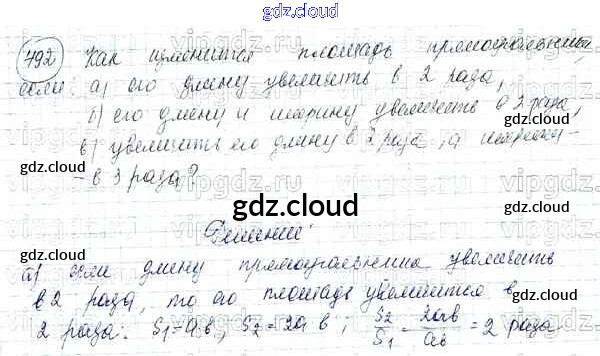 gdz.cloud
792 Как изменится площадь прямоугольника,
если: а) его длину увеличить в 2 раза,
б) его длину и ширину увеличить в 2 раза,
в) увеличить его длину в 2 раза, а ширину -
gdz.cloud gdz.cloud
- в 3 раза?
gdz.cloud
gdz.cloud
Решение:
а) если длину прямоугольника увеличить
в 2 раза, то его площадь увеличится в
2 раза: S₁=ab, S₂=2ab; S₂/S₁ = 2ab/ab = 2 раза.
gdz.cloud gdz.cloud